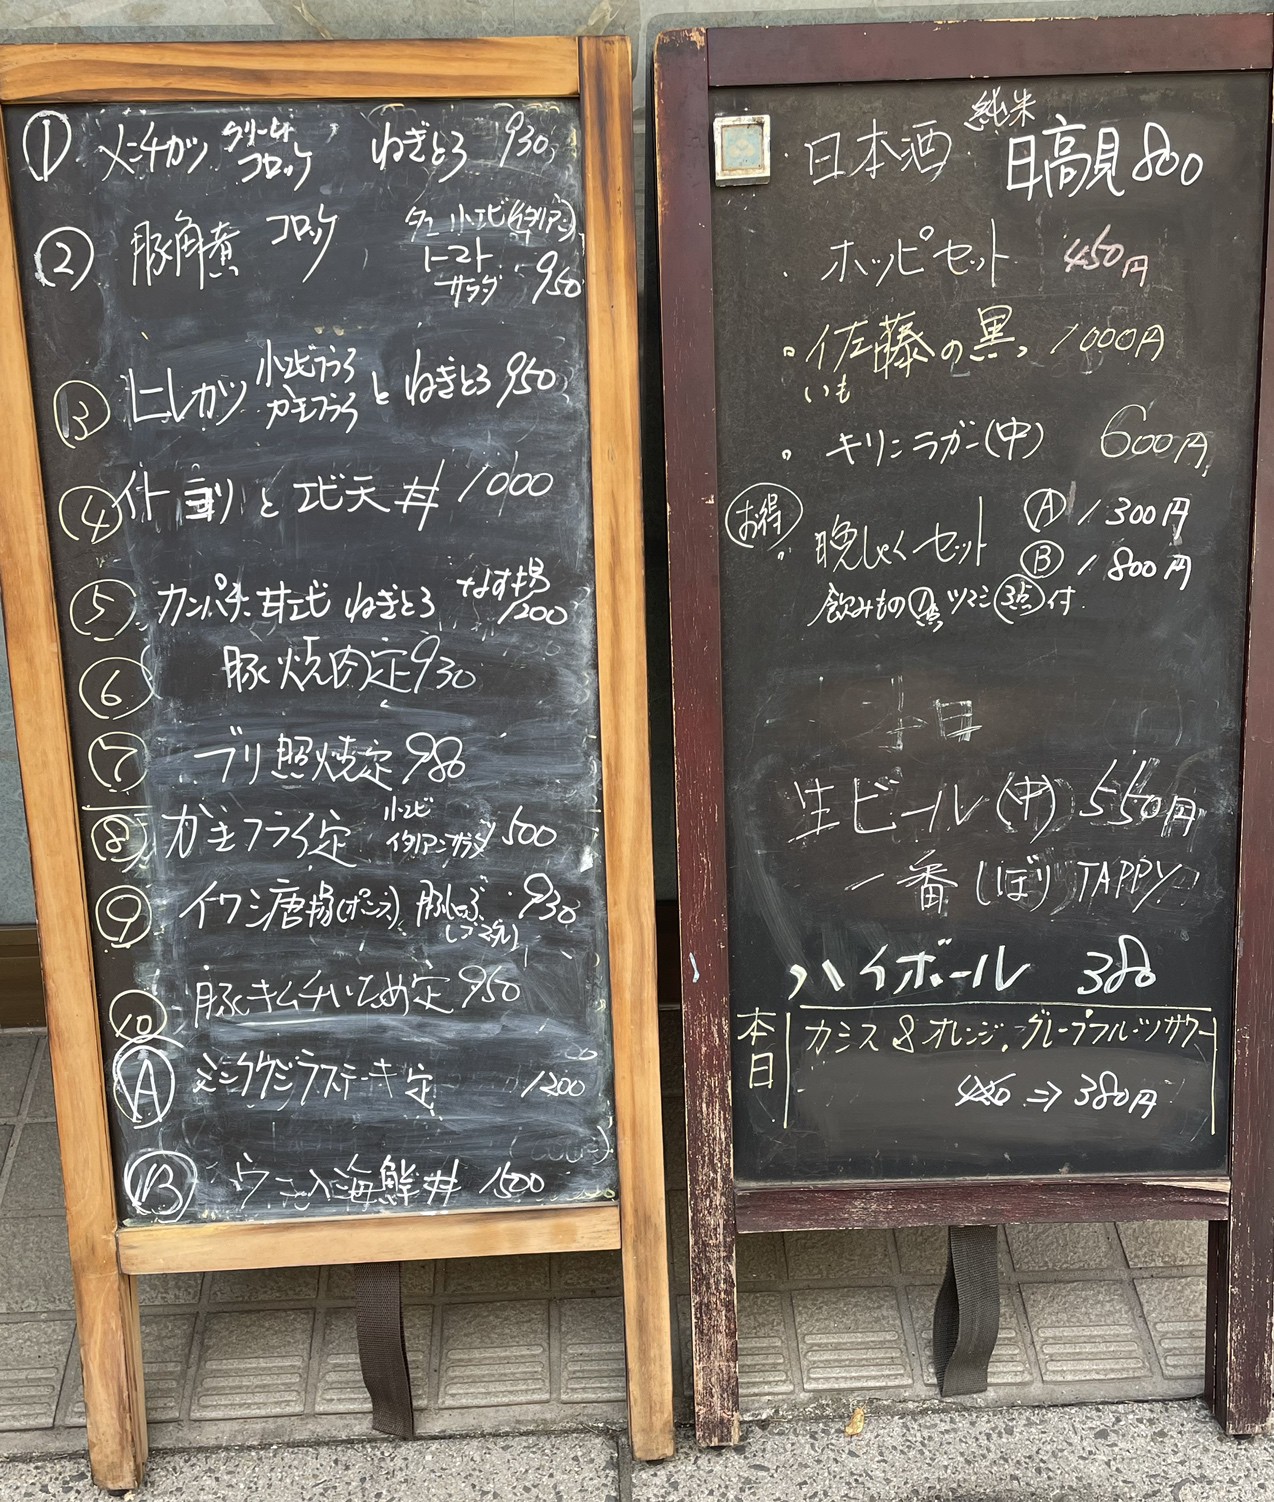 ① メンチカツ クリーミィコロッケ ねぎとろ 930
② 豚角煮 コロッケ 小エビ(イタリアン)
トマト
サラダ 950
③ ヒレカツ 小エビフライ カキフライ と ねぎとろ 950
④ と エビ天丼 1000
⑤ カンパチ 甘エビ ねぎとろ なす揚 1200
⑥ 豚焼肉定 930
⑦ ブリ照焼定 980
⑧ カキフライ定 小エビ イタリアンサラダ 1500
⑨ イワシ唐揚(ポンズ) 豚しゃぶ 930
⑩ 豚キムチいため定 950
Ⓐ ミンククジラステーキ定 1200
Ⓑ ウニ入海鮮丼 1500
・日本酒 純米 日高見 800
・ホッピセット 450円
・佐藤の黒 1000円
いも
・キリンラガー(中) 600円
お得
・晩しゃくセット Ⓐ 1300円
Ⓑ 1800円
飲みもの ツマミ 付
生ビール(中) 550円
一番しぼり TAPPY
ハイボール 380
本日 カシス&オレンジ、グレープフルーツサワー
⇒380円